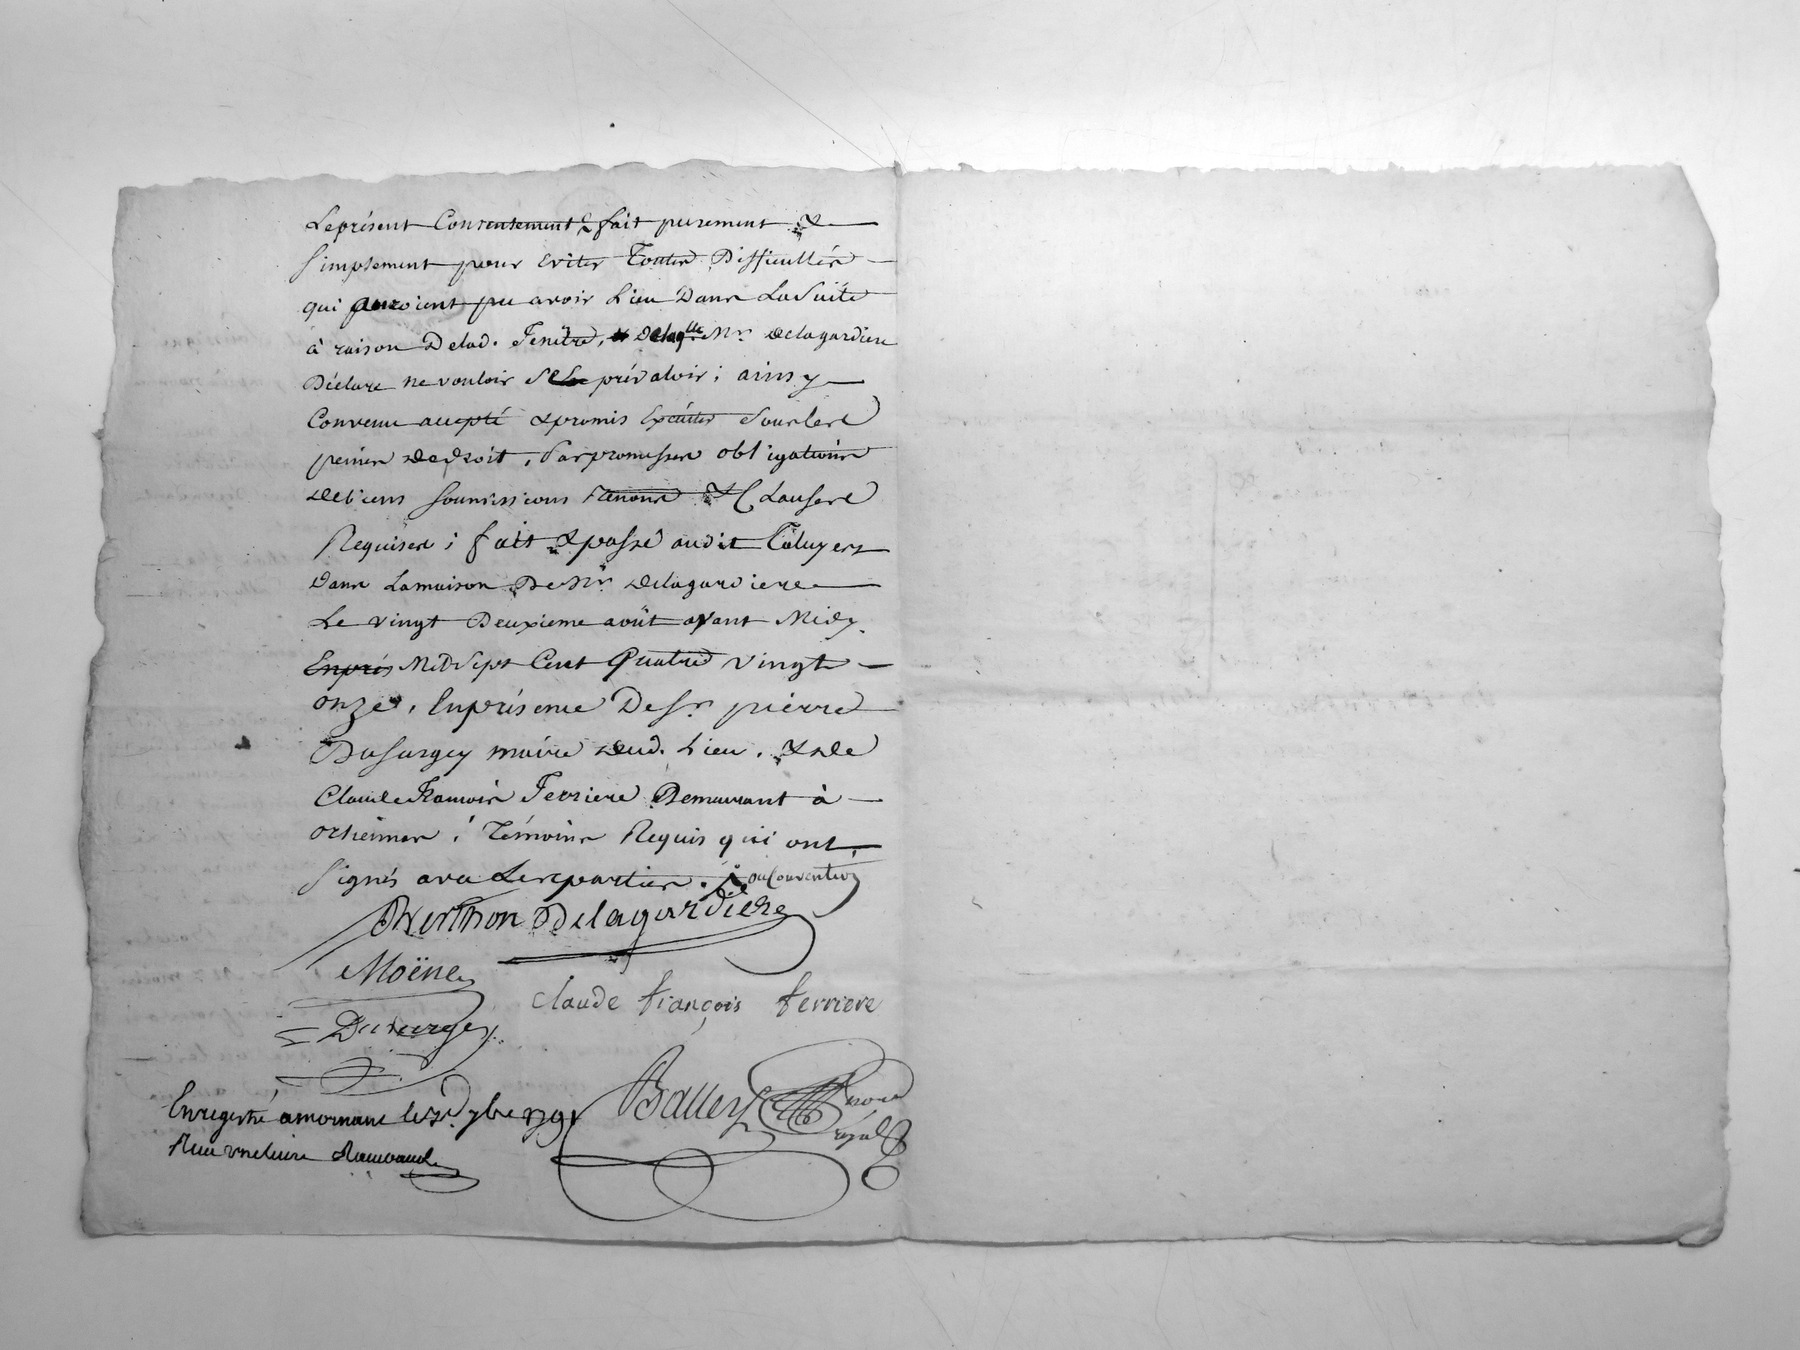 Le présent Consentement fait purement &
simplement pour Eviter Toutes Difficultés
qui auroient pu avoir Lieu Dans La Suitte
à raison Delad. Fenêtre, Delaqlle Mr. Delagardiere
Déclare ne vouloir se prévaloir ; ainsy
Convenu accepté & promis Exécuter Sous les
peines de droit, Par promesses obligations
de biens Soumissions Renonc. & Clauses
Requises ; fait & passé audit Taluyers
Dans La maison De Sr. Delagardiere
Le vingt Deuxieme août avant Midy
Sept Cent Quatre vingt
onze, En présence De Sr. pierre
Dusurgey maire dud. Lieu, & de
Claude François Ferriere Demeurant à
orlienas ; Témoins Requis qui ont
Signés avec Les parties.
Berthon Delagardiere
Moëne
Claude françois ferriere
Dusurgey
Balley Notre royal
Enregistré a mornant le 7bre 1791
Reçu